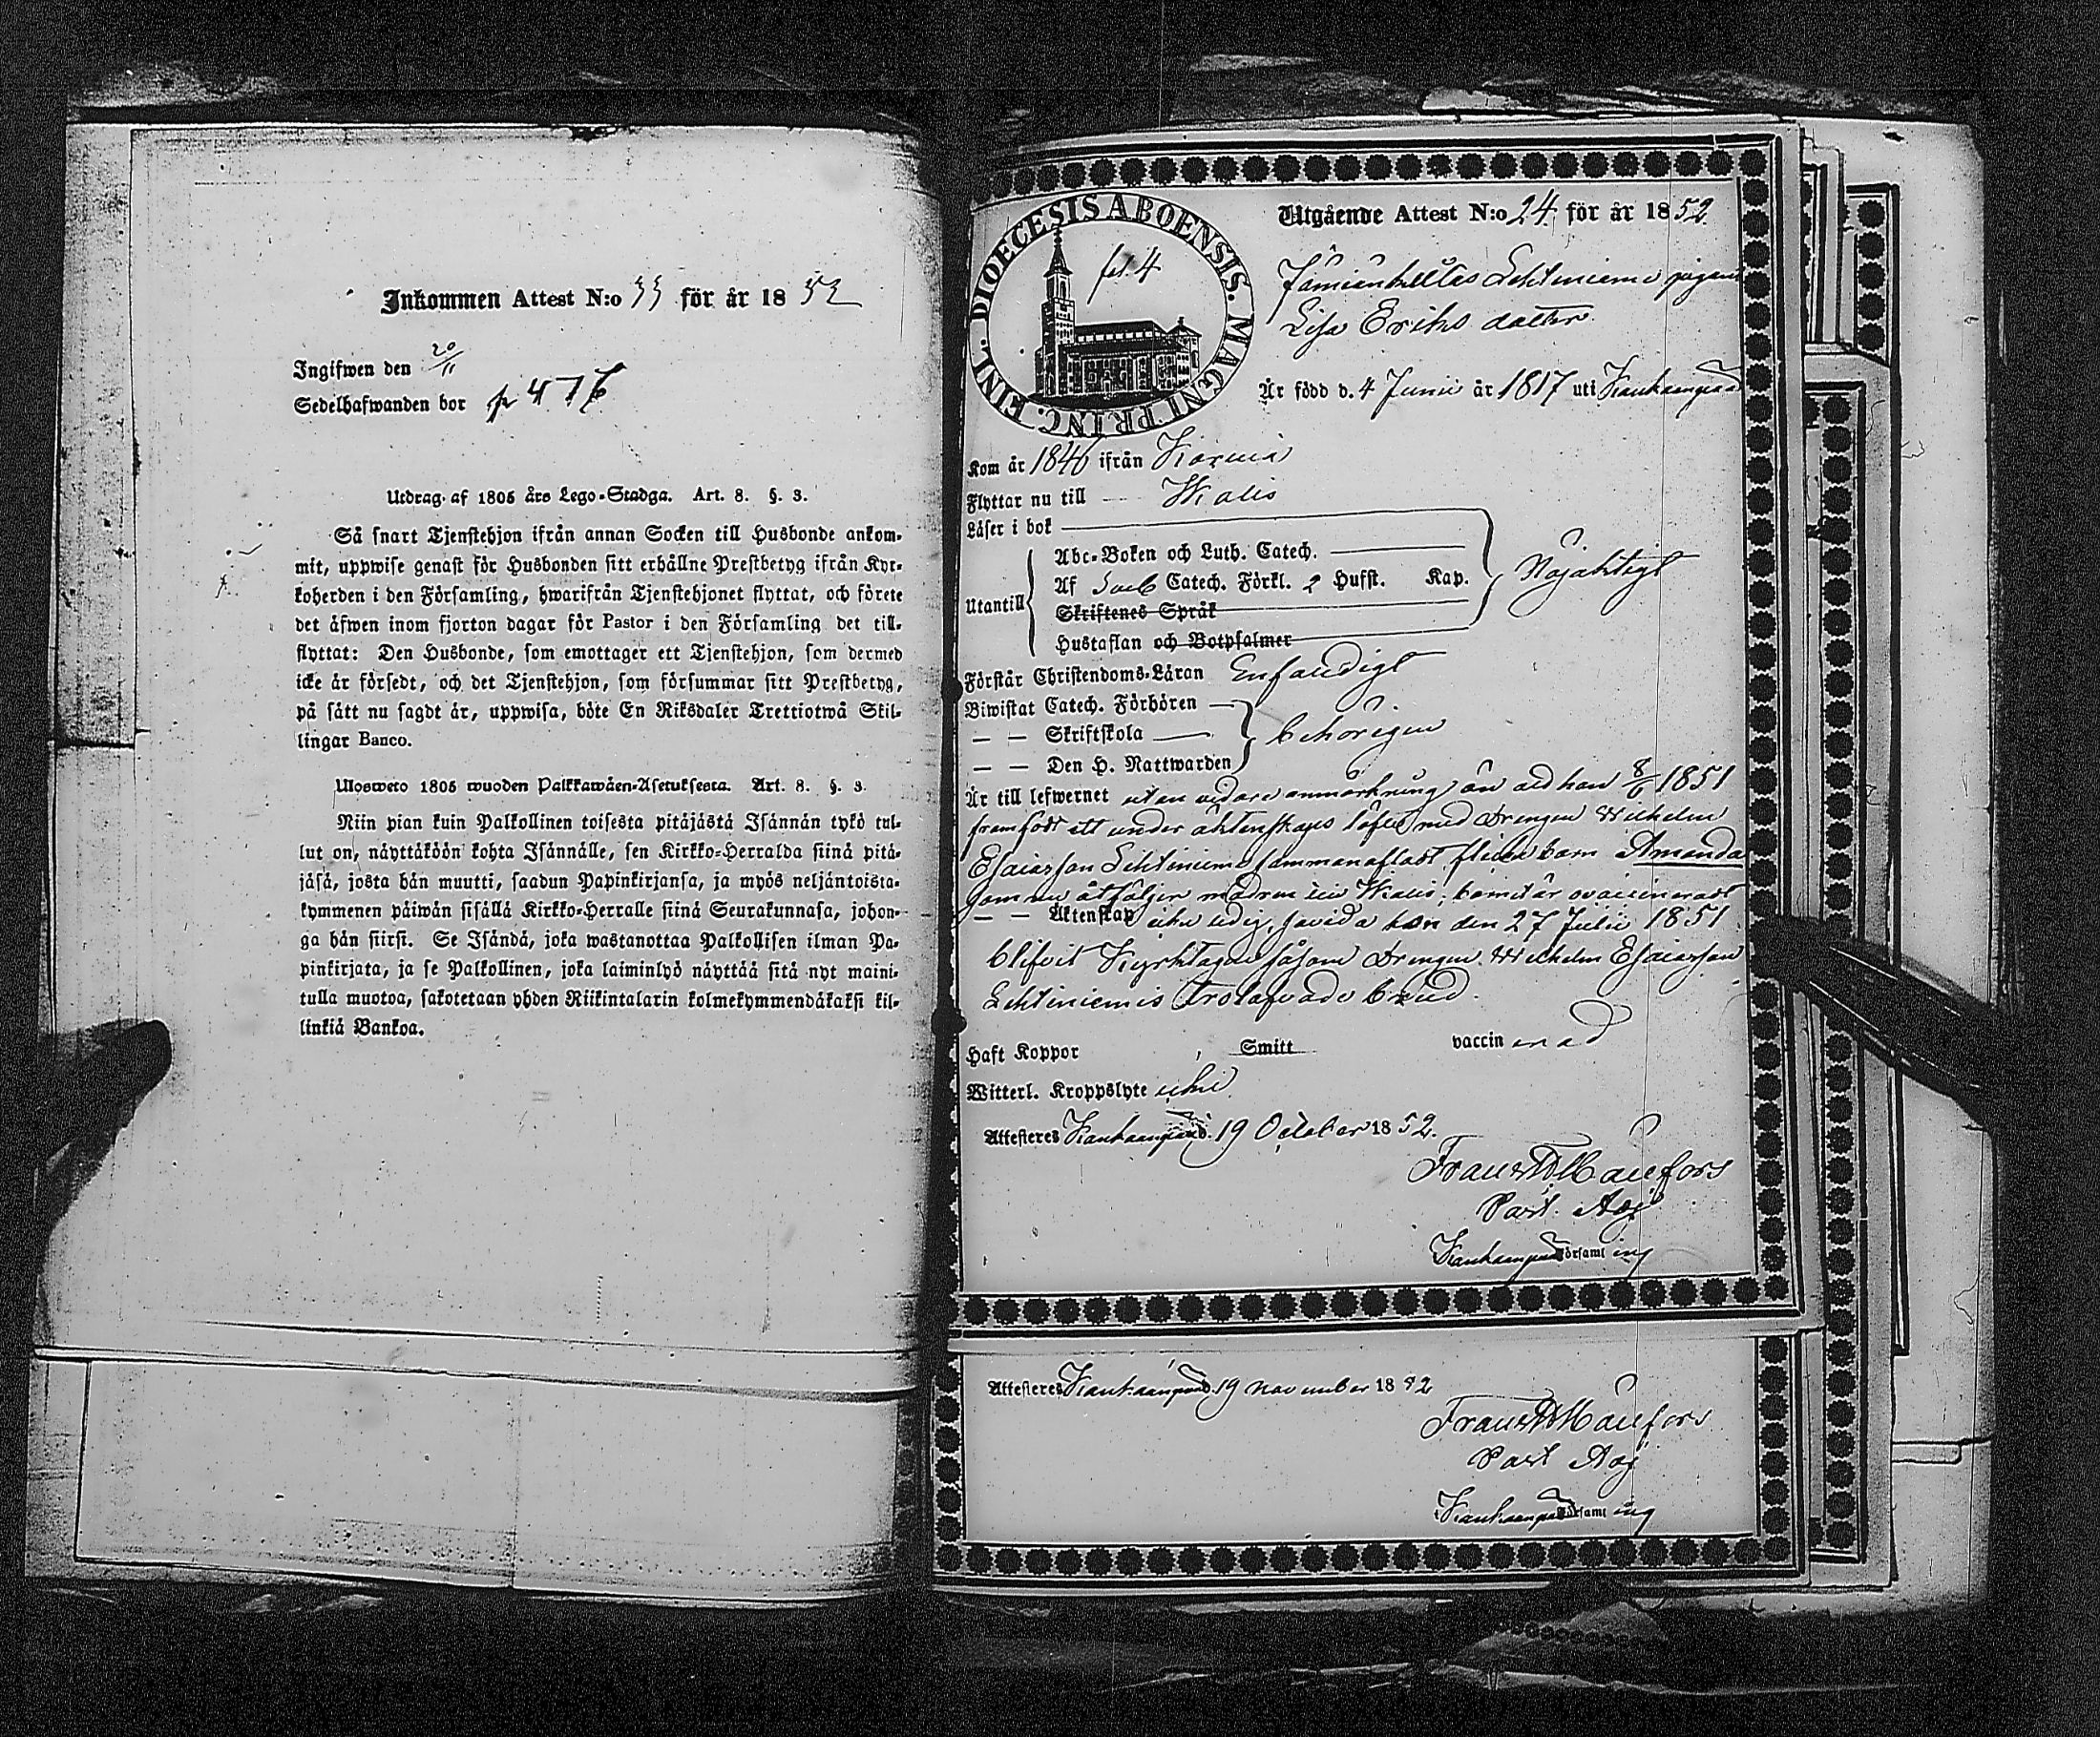 Inkommen Attest N:o 33 för år 18 52
Ingifwen den 20/11
Sedelhafwanden bor p 476
Utdrag af 1805 års Lego-Stadga. Art. 8. §. 3.
Så snart Tjenstehjon ifrån annan Socken till Husbonde ankom-
mit, uppwise genast för Husbonden sitt erhållne Prestbetyg ifrån Kyr-
koherden i den Församling, hwarifrån Tjenstehjonet flyttat, och förete
det äfwen inom fjorton dagar för Pastor i den Församling det till-
flyttat: Den Husbonde, som emottager ett Tjenstehjon, som dermed
icke är försedt, och det Tjenstehjon, som försummar sitt Prestbetyg,
på sätt nu sagdt är, uppwisa, böte En Riksdaler Trettiotwå Skil-
lingar Banco.
Ulosweto 1805 wuoden Palkkawäen-Asetuksesta. Art. 8. §. 3.
Niin pian kuin Palkollinen toisesta pitäjästä Isännän tykö tul-
lut on, näyttäköön kohta Isännälle, sen Kirkko-Herralda siinä pitä-
jäsä, josta hän muutti, saadun Papinkirjansa, ja myös neljäntoista-
kymmenen päiwän sisällä Kirkko-Herralle siinä Seurakunnasa, johon-
ga hän siirsi. Se Isändä, joka wastanottaa Palkollisen ilman Pa-
pinkirjata, ja se Palkollinen, joka laiminlyö näyttää sitä nyt maini-
tulla muotoa, sakotetaan yhden Riikintalarin kolmekymmendäkaksi kil-
linkiä Bankoa.
DIOECESIS ABOENSIS. MAGNI PRINC. FINL.
fol. 4
Utgående Attest N:o 24 för år 18 52.
Lehtiniemi pigan
Lisa Eriks dotter
Är född d. 4 Junii år 1817 uti Kankaanpää
Kom år 1846 ifrån Karvia
Flyttar nu till Ikalis
Läser i bok
Utantill
Abc-Boken och Luth. Catech.
Af Catech. Förkl. 2 Hufst. Kap.
Skriftenes Språk
Hustaflan och Botpsalmer
Nöjaktigt
Förstår Christendoms-Läran Enfaldigt
Biwistat Catech. Förhören
— — Skriftskola
— — Den H. Nattwarden
behörigen
Är till lefwernet utan vidare anmärkning än att hon 8/6 1851
framfödt ett under äktenskaps löfte med Drengen Wilhelm
Esaiasson Lehtiniemi sammanafladt flicko barn Amanda
som nu åtföljer modren till Ikalis; barnet är ovaccineradt
— — Äktenskap icke ledig, sedan hon den 27 Julii 1851
blifvit Kyrktagen såsom Drengen Wilhelm Esaiasson
Lehtiniemis trolofvade brud.
Haft Koppor , Smitt vaccin erad
Witterl. Kroppslyte icke
Attesteres Kankaanpää d. 19 October 18 52.
Frans Manfors
Past. Adj
Kankaanpää Församl ing
Attesteres Kankaanpää d. 19 November 18 52
Frans Manfors
Past Adj
Kankaanpää Församl ing